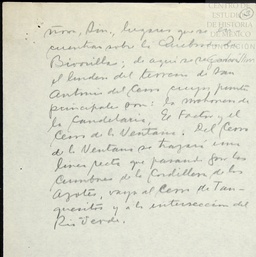 CENTRO DE
ESTUDIOS
DE HISTORIA
DE MÉXICO
lugares que se
cuentran sobre la
; de aquí se
el linden del terreno de San
Antonio del Cerro cuyos puntos
principales son: la mohonera de
la Candelaria, El Factor y el
Cerro de la Ventana. Del Cerro
de la Ventana se trazará una
línea recta que pasando por las
Cumbres de la Cordillera de los
Azotes, vaya al Cerro de Tan-
quecitos y a la intersección del
Río Verde.